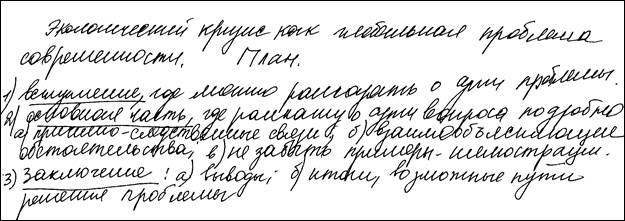 Экологический кризис как глобальная проблема
современности. План.
1) вступление, где можно рассказать о сути проблемы.
2) основная часть, где расскажу о сути вопроса подробно
а) причинно-следственные связи, б) взаимообъясняющие
обстоятельства, в) не забыть примеры-иллюстрации.
3) Заключение: а) выводы; б) итоги, возможные пути
решения проблемы